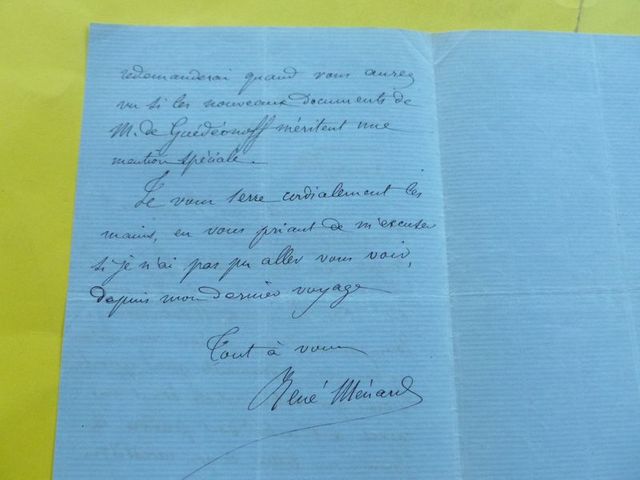 redemanderai quand vous aurez
vu si les nouveaux documents de
M. de Guédéonoff méritent une
mention spéciale.
Je vous serre cordialement les
mains, en vous priant de m'excuser
si je n'ai pas pu aller vous voir,
depuis mon dernier voyage
Tout à vous
René Ménard